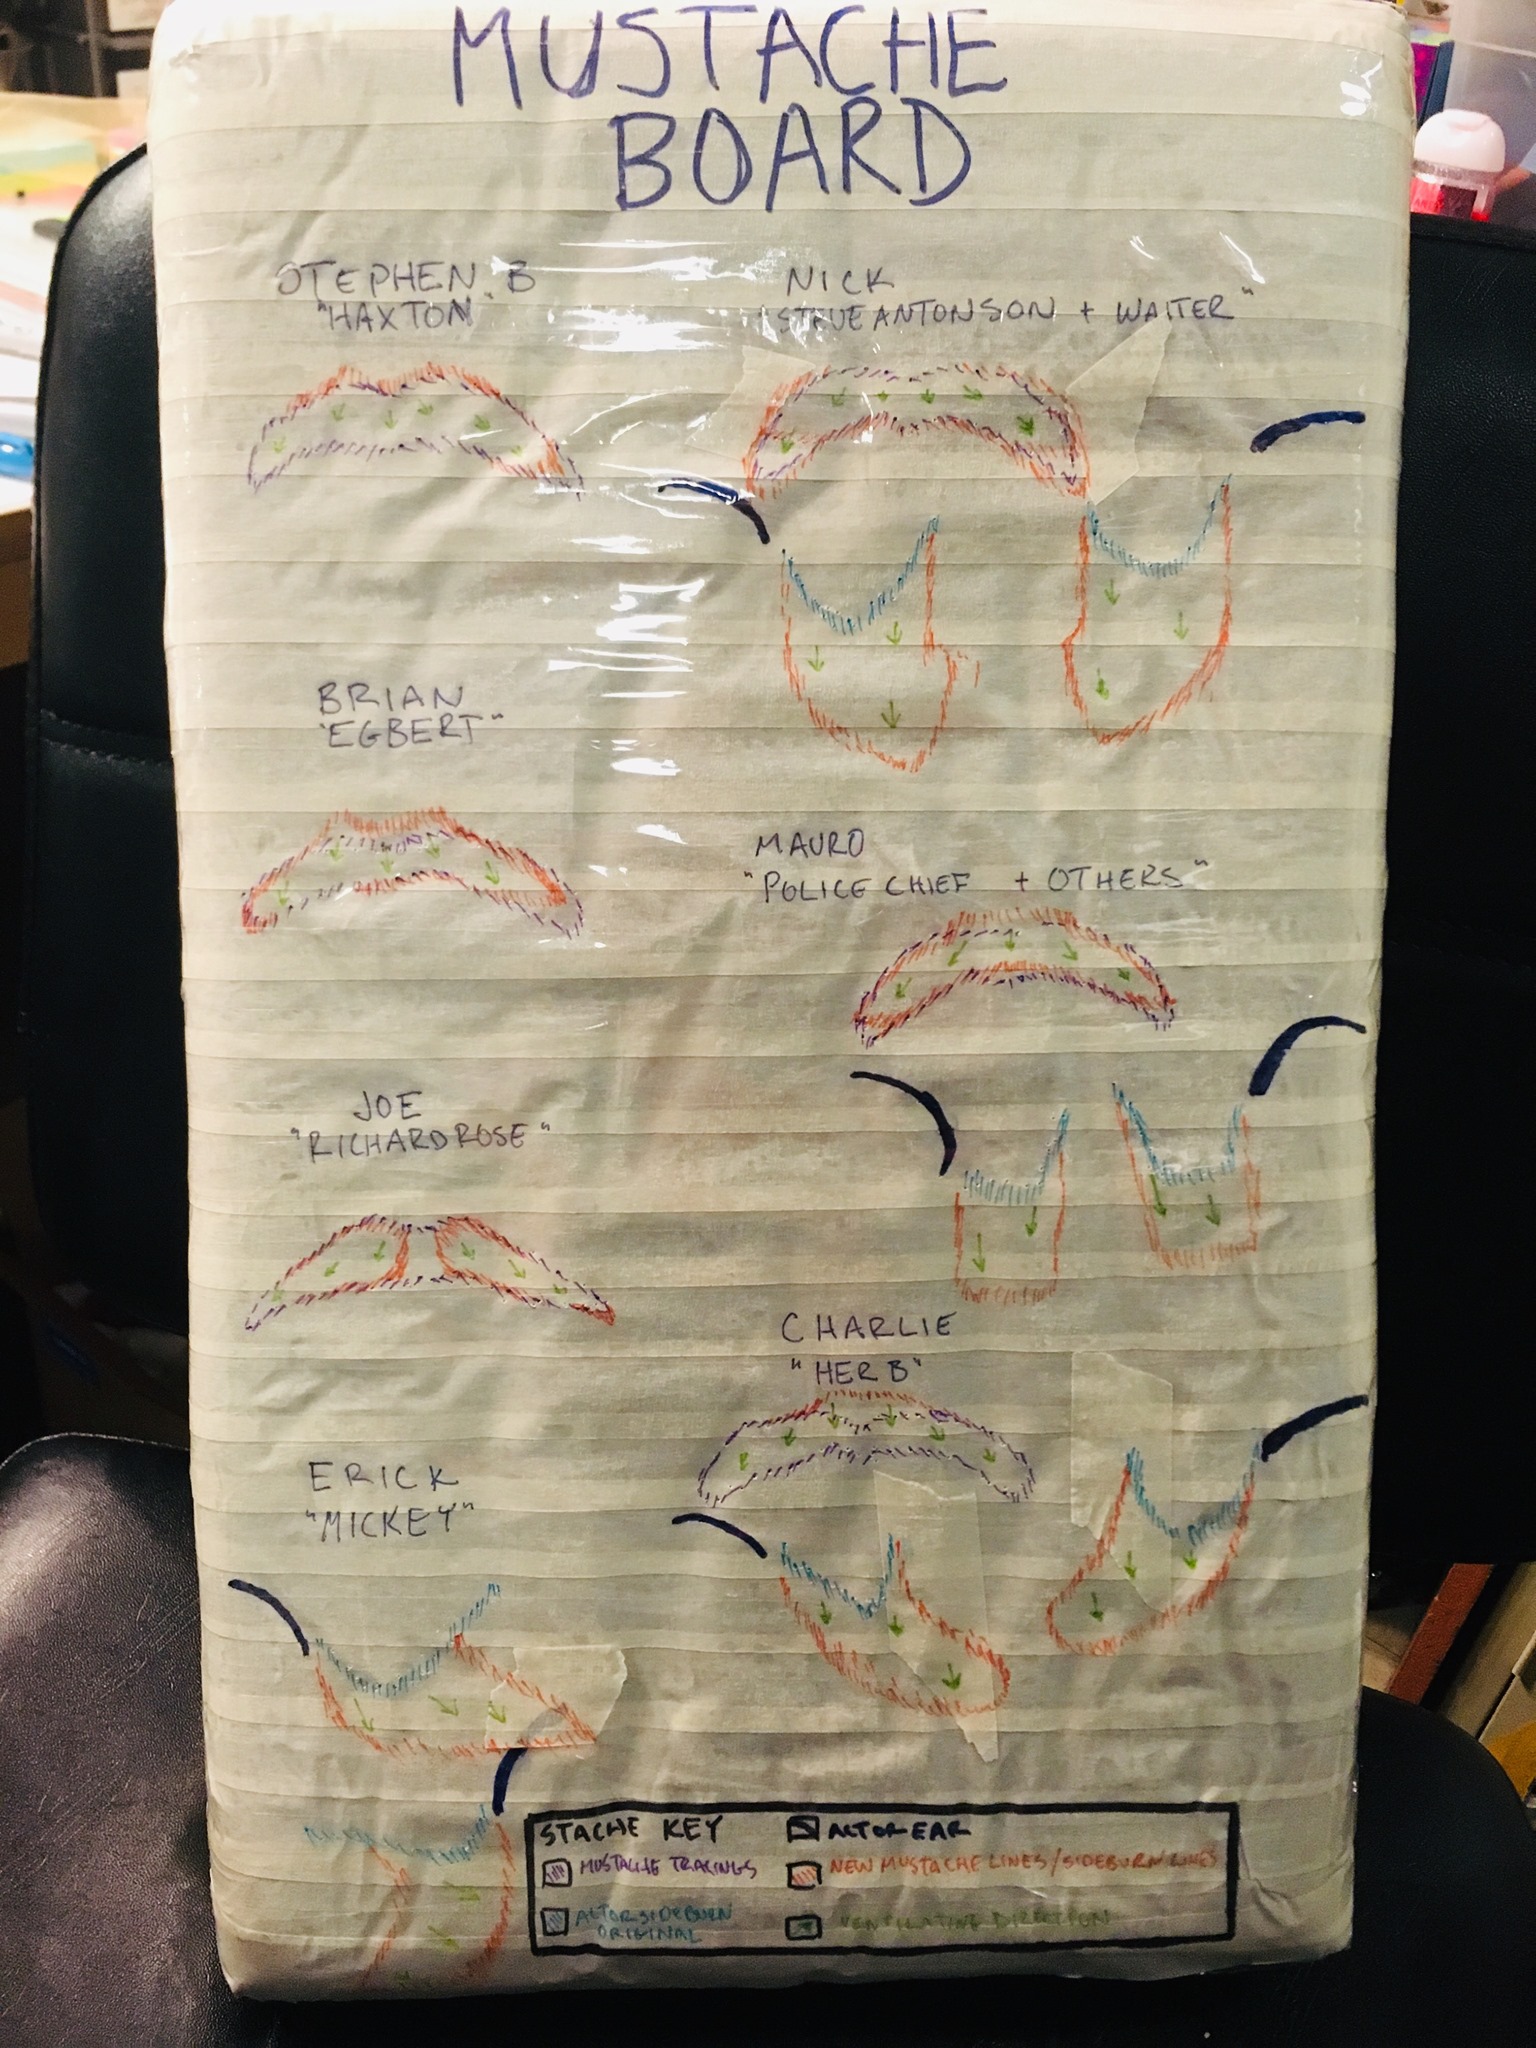 MUSTACHE
BOARD
STEPHEN B
"HAXTON"
NICK
"STEVE ANTONSON + WAITER"
BRIAN
"EGBERT"
MAURO
"POLICE CHIEF + OTHERS"
JOE
"RICHARD ROSE"
CHARLIE
"HERB"
ERICK
"MICKEY"
STACHE KEY
ACTOR EAR
MUSTACHE TRACINGS
NEW MUSTACHE LINES/SIDEBURN LINES
ACTOR SIDEBURN
ORIGINAL
VENTILATING DIRECTION